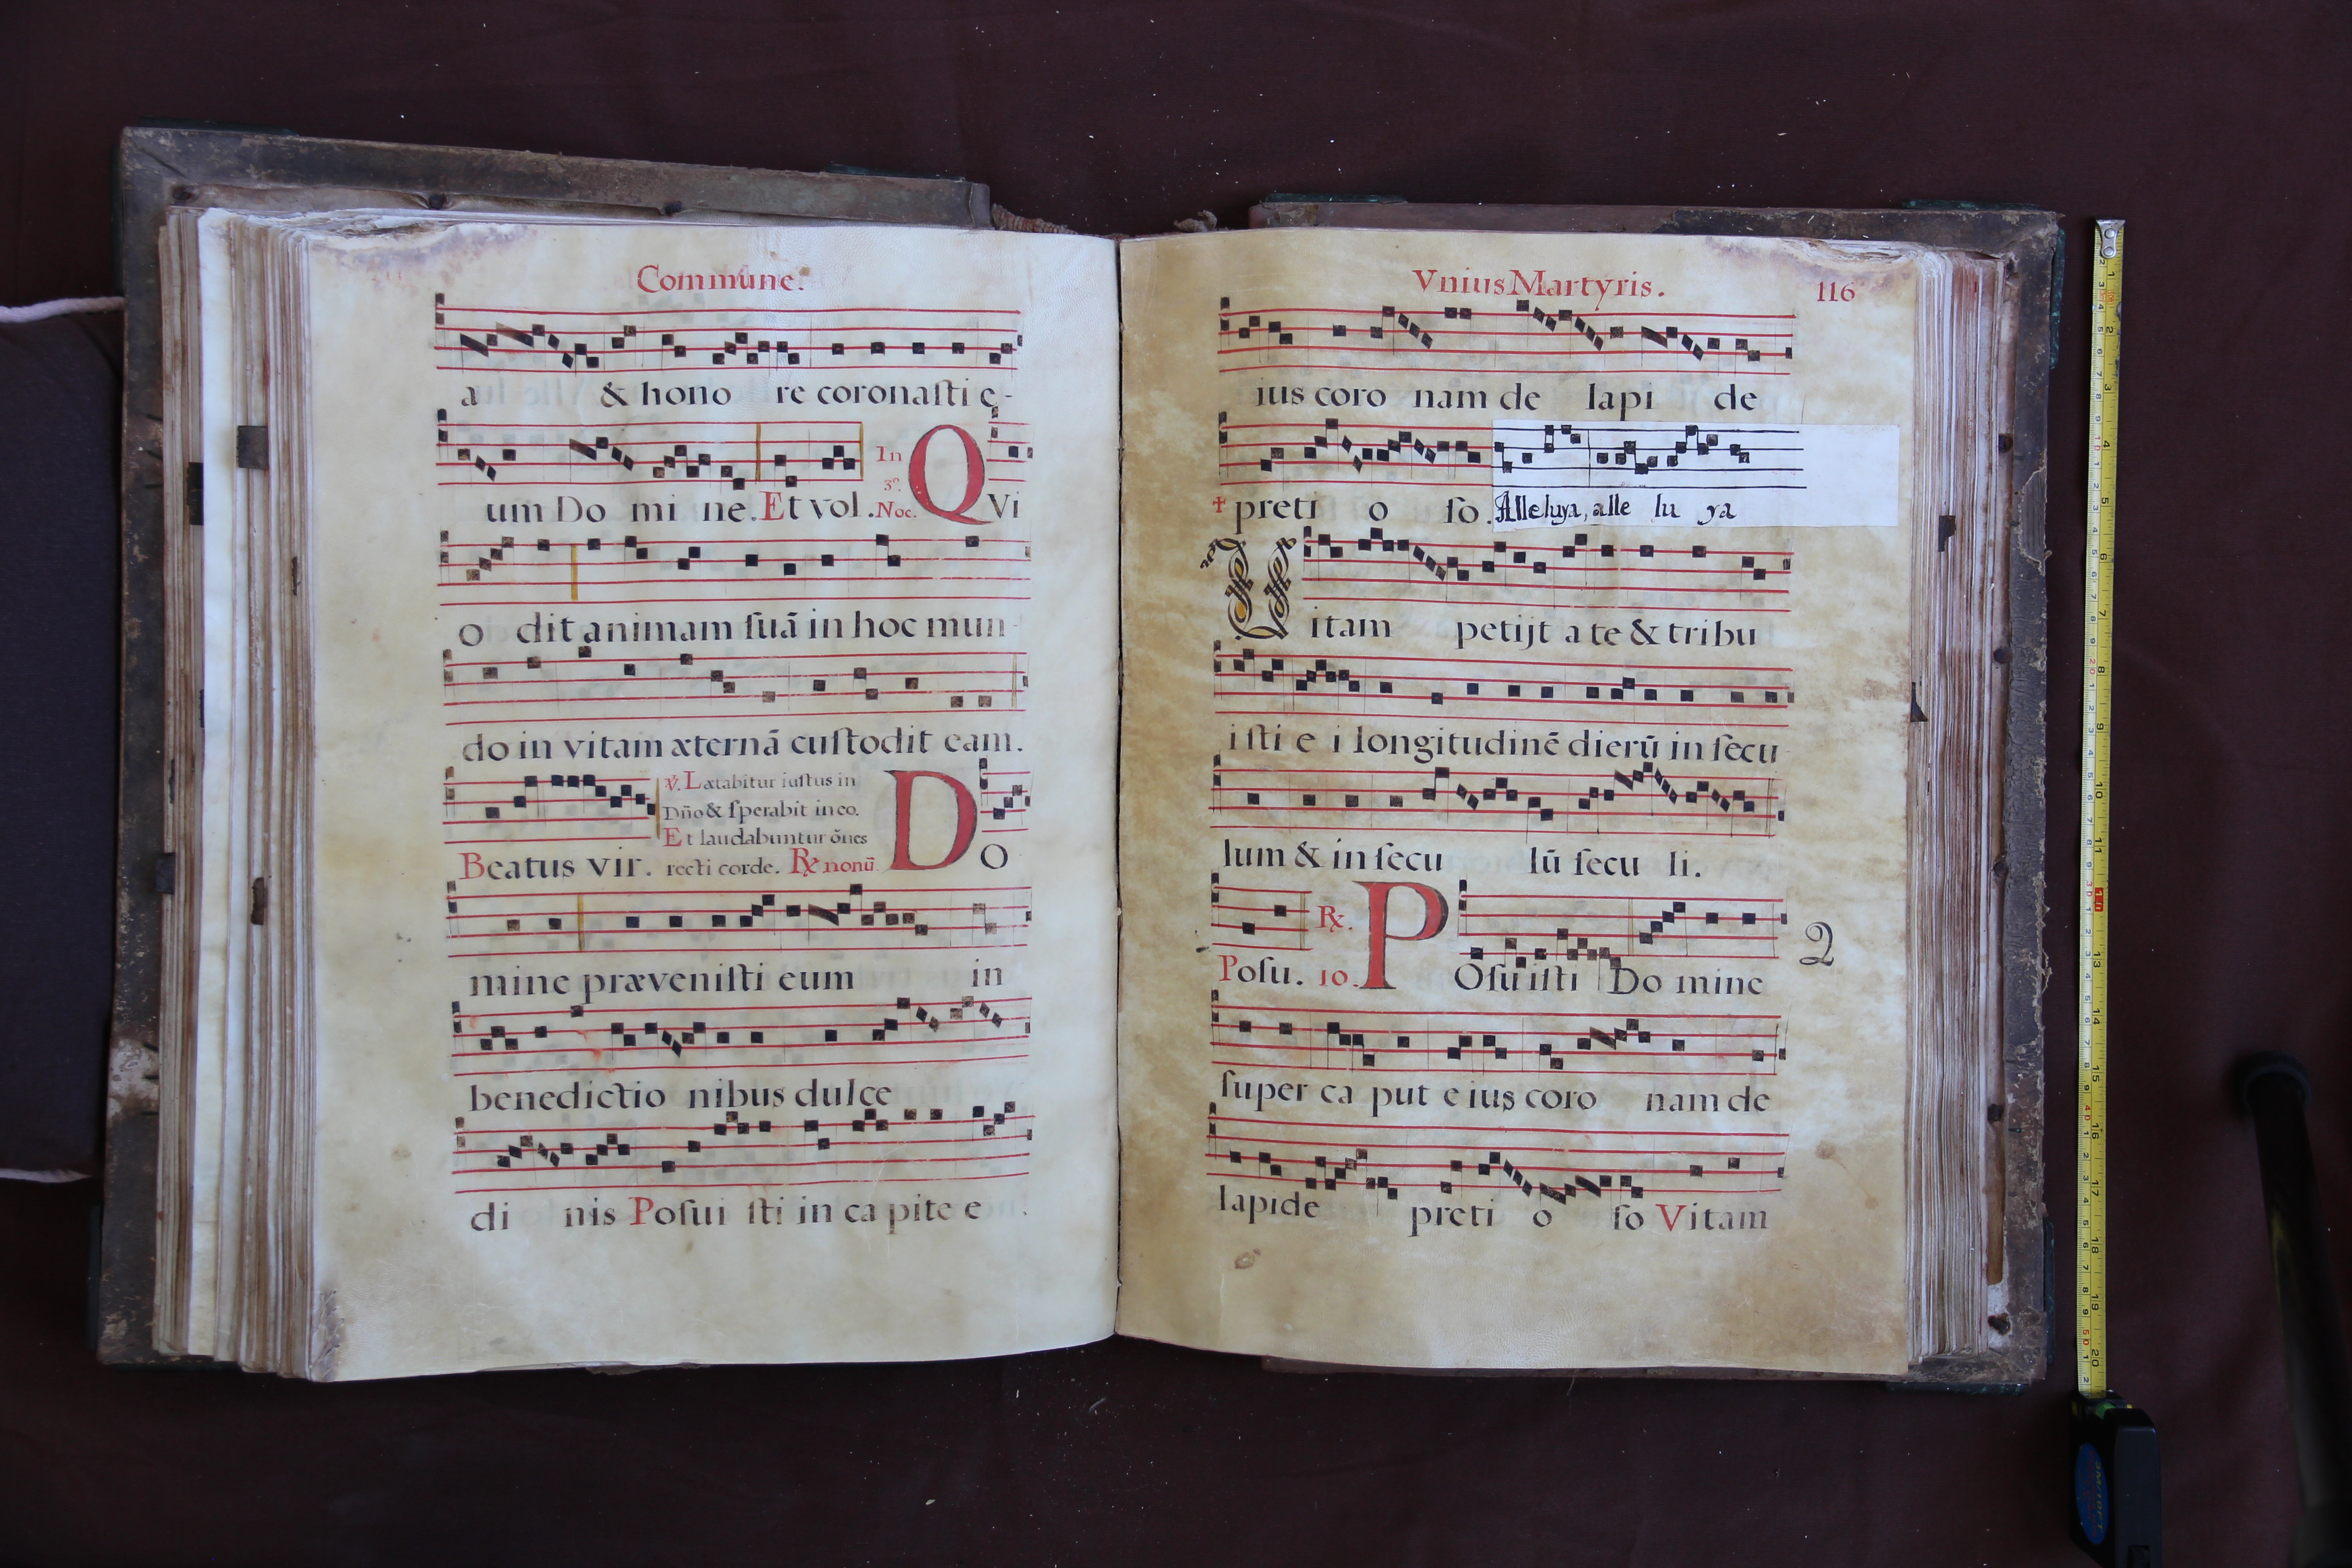 Commune.
a & hono re coronaſti e-
um Do mi ne. Et vol. In 3º. Noc. QVi
o dit animam ſuā in hoc mun-
do in vitam æternā cuſtodit eam.
Beatus vir.
℣. Lætabitur iuſtus in
Dño & ſperabit in eo.
Et laudabuntur ōnes
recti corde. ℟ nonū. DO
mine præveniſti eum in
benedictio nibus dulce
di nis Poſui ſti in ca pite e
Vnius Martyris. 116
ius coro nam de lapi de
+ preti o ſo. Alleluya, alle lu ya
Ver
Vitam petijt a te & tribu
iſti e i longitudinē dierū in ſecu-
lum & in ſecu lū ſecu li.
Poſu. 10. ℟. POſuiſti Do mine 2
ſuper ca put e ius coro nam de
lapide preti o ſo Vitam